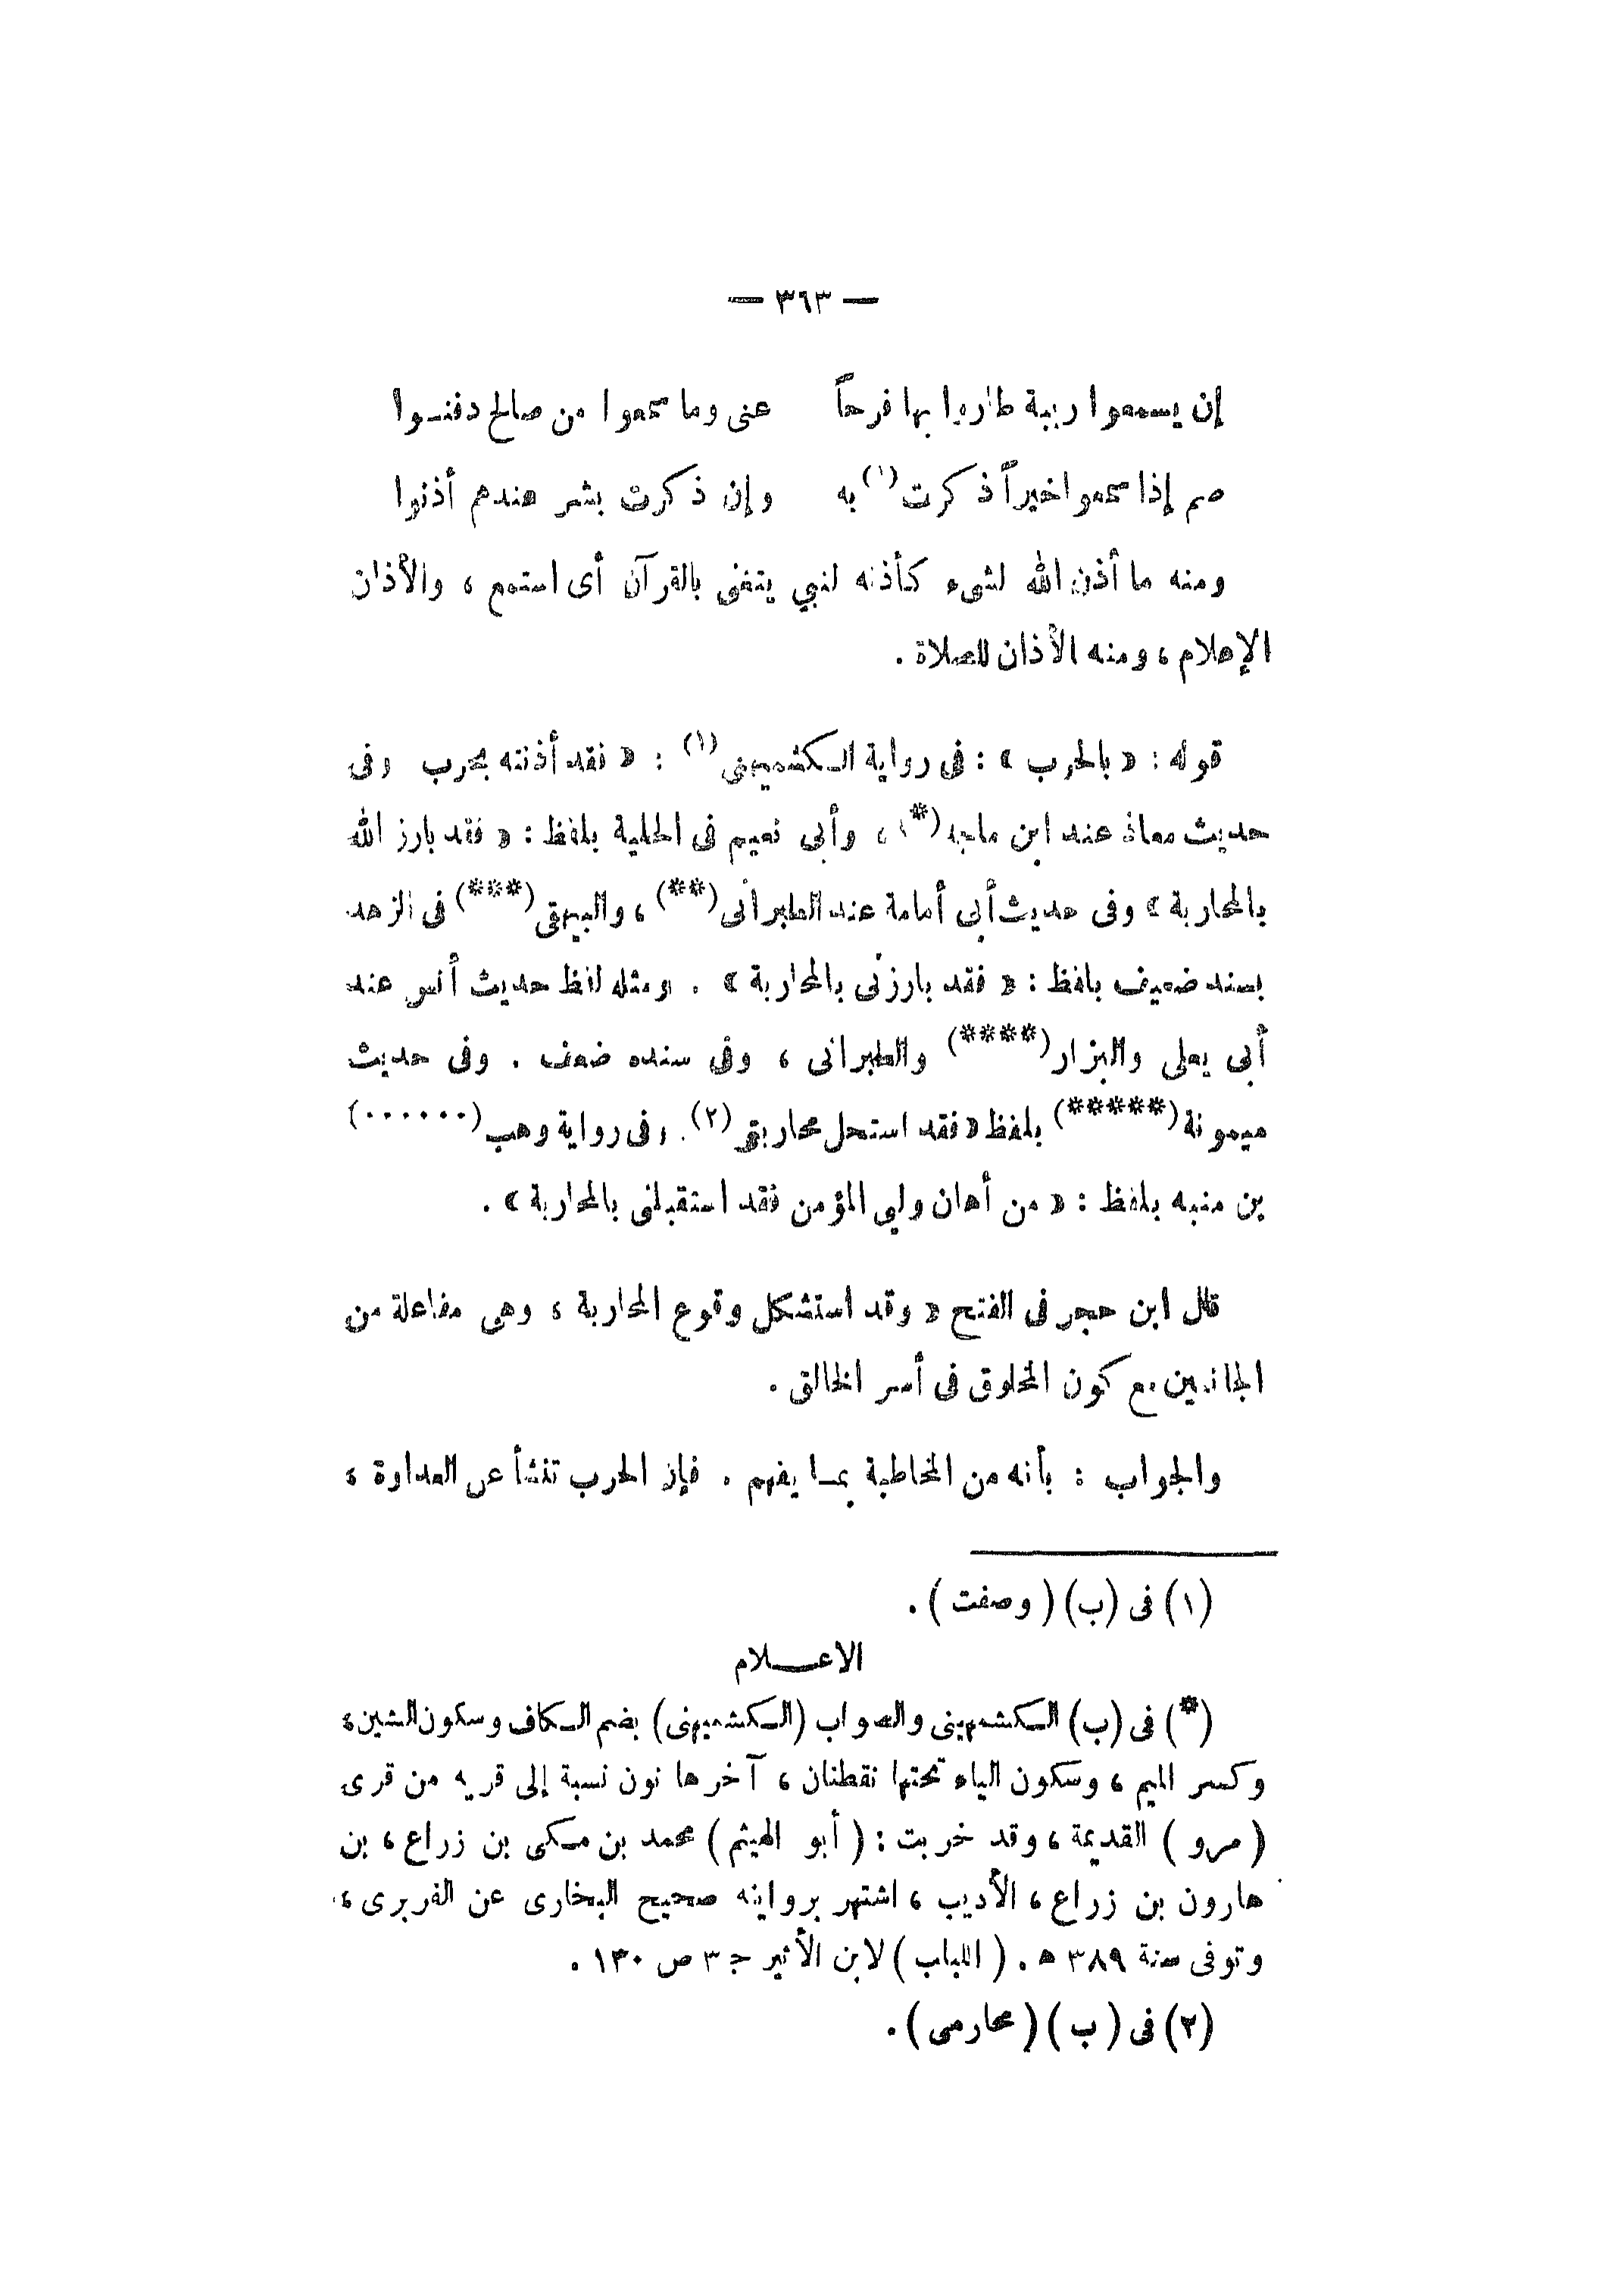 — ٣٦٣ —
إن يسمعوا ريبة طاروا بها فرحاً عنى وما سمعوا من صالح دفنــوا
صم إذا سمعوا خيراً ذكرت(١) به وإن ذكرت بشر عندهم أذنوا
ومنه ما أذن الله لشىء كأذنه لنبي يتغنى بالقرآن أى استمع ، والأذان
الإعلام ، ومنه الأذان للصلاة .
قوله : « بالحرب » : فى رواية الـكشميهنى(١) : « فقد أذنته بحرب وفى
حديث معاذ عند ابن ماجه(*) ، وأبى نعيم فى الحلية بلفظ : « فقد بارز الله
بالمحاربة » وفى حديث أبى أمامة عند الطبرانى(**) ، والبيهقى(***) فى الزهد
بسند ضعيف بلفظ : « فقد بارزنى بالمحاربة » . ومثله لفظ حديث أنس عند
أبى يعلى والبزار(****) والطبرانى ، وفى سنده ضعف . وفى حديث
ميمونة(*****) بلفظ « فقد استحل محاربتى(٢) . وفى رواية وهب(٠٠٠٠٠٠)
بن منبه بلفظ : « من أهان ولي المؤمن فقد استقبلنى بالمحاربة » .
قال ابن حجر فى الفتح « وقد استشكل وقوع المحاربة ، وهى مفاعلة من
الجانبين مع كون المخلوق فى أسر الخالق .
والجواب : بأنه من المخاطبة بمـا يفهم . فإن الحرب تنشأ عن العداوة ،
(١) فى (ب) ( وصفت ) .
الاعــلام
(*) فى (ب) الـكشمهينى والصواب (الـكشميهنى) بضم الـكاف وسكون الشين ،
وكسر الميم ، وسكون الياء تحتها نقطتان ، آخرها نون نسبة إلى قريه من قرى
( مرو ) القديمة ، وقد خربت : ( أبو الهيثم ) محمد بن مـكى بن زراع ، بن
هارون بن زراع ، الأديب ، اشتهر بروايته صحيح البخارى عن الفربرى ،
وتوفى سنة ٣٨٩ ه . ( اللباب ) لابن الأثير ج ٣ ص ١٣٠ .
(٢) فى ( ب ) ( محارمى ) .